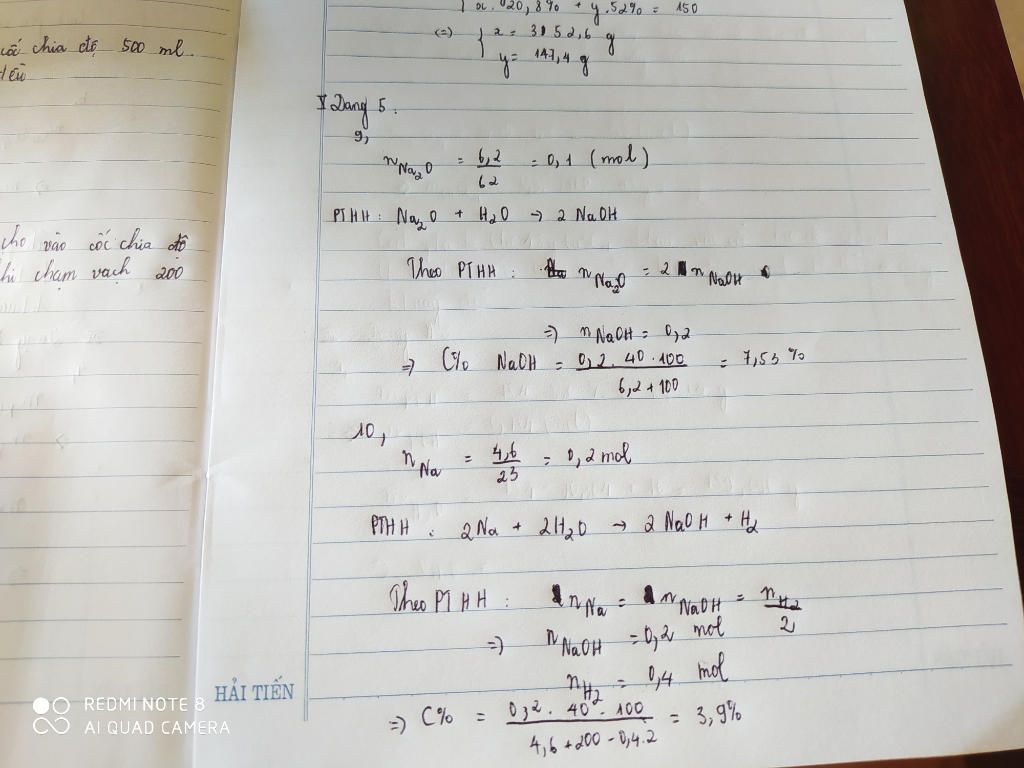 cốc chia độ 500 ml
đều
cho vào cốc chia độ
khi chạm vạch 200
{ x.020,8% + y.52% = 150
(=) { x = 3152,6 g
y = 147,4 g
V Dạng 5:
9,
n Na2O = 6,2/62 = 0,1 (mol)
PTHH: Na2O + H2O → 2 NaOH
Theo PTHH: n Na2O = 2 n NaOH
=) n NaOH = 0,2
=) C% NaOH = 0,2.40.100/6,2+100 = 7,53%
10,
n Na = 4,6/23 = 0,2 mol
PTHH: 2Na + 2H2O → 2 NaOH + H2
Theo PTHH: n Na = n NaOH = n H2/2
=) n NaOH = 0,2 mol
n H2 = 0,4 mol
=) C% = 0,2.40.100/4,6+200-0,4.2 = 3,9%
HẢI TIẾN
REDMI NOTE 8
AI QUAD CAMERA